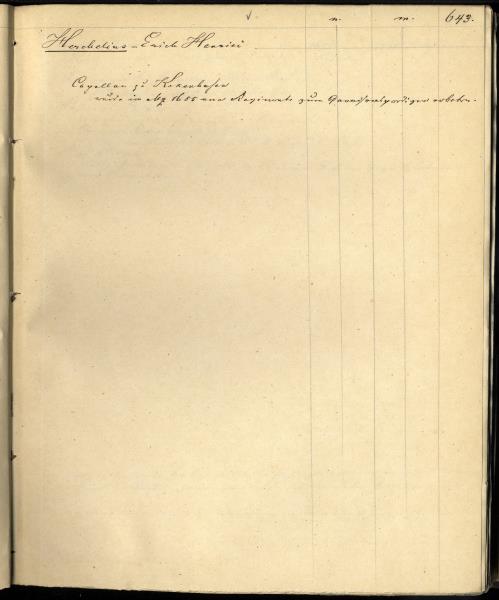 n. m. 643.
Herchelius - Erich Henrici
Capellan zu Kokenhusen
wurde im Mz 1655 vom Regiment zum Garnisonsprediger erbeten.